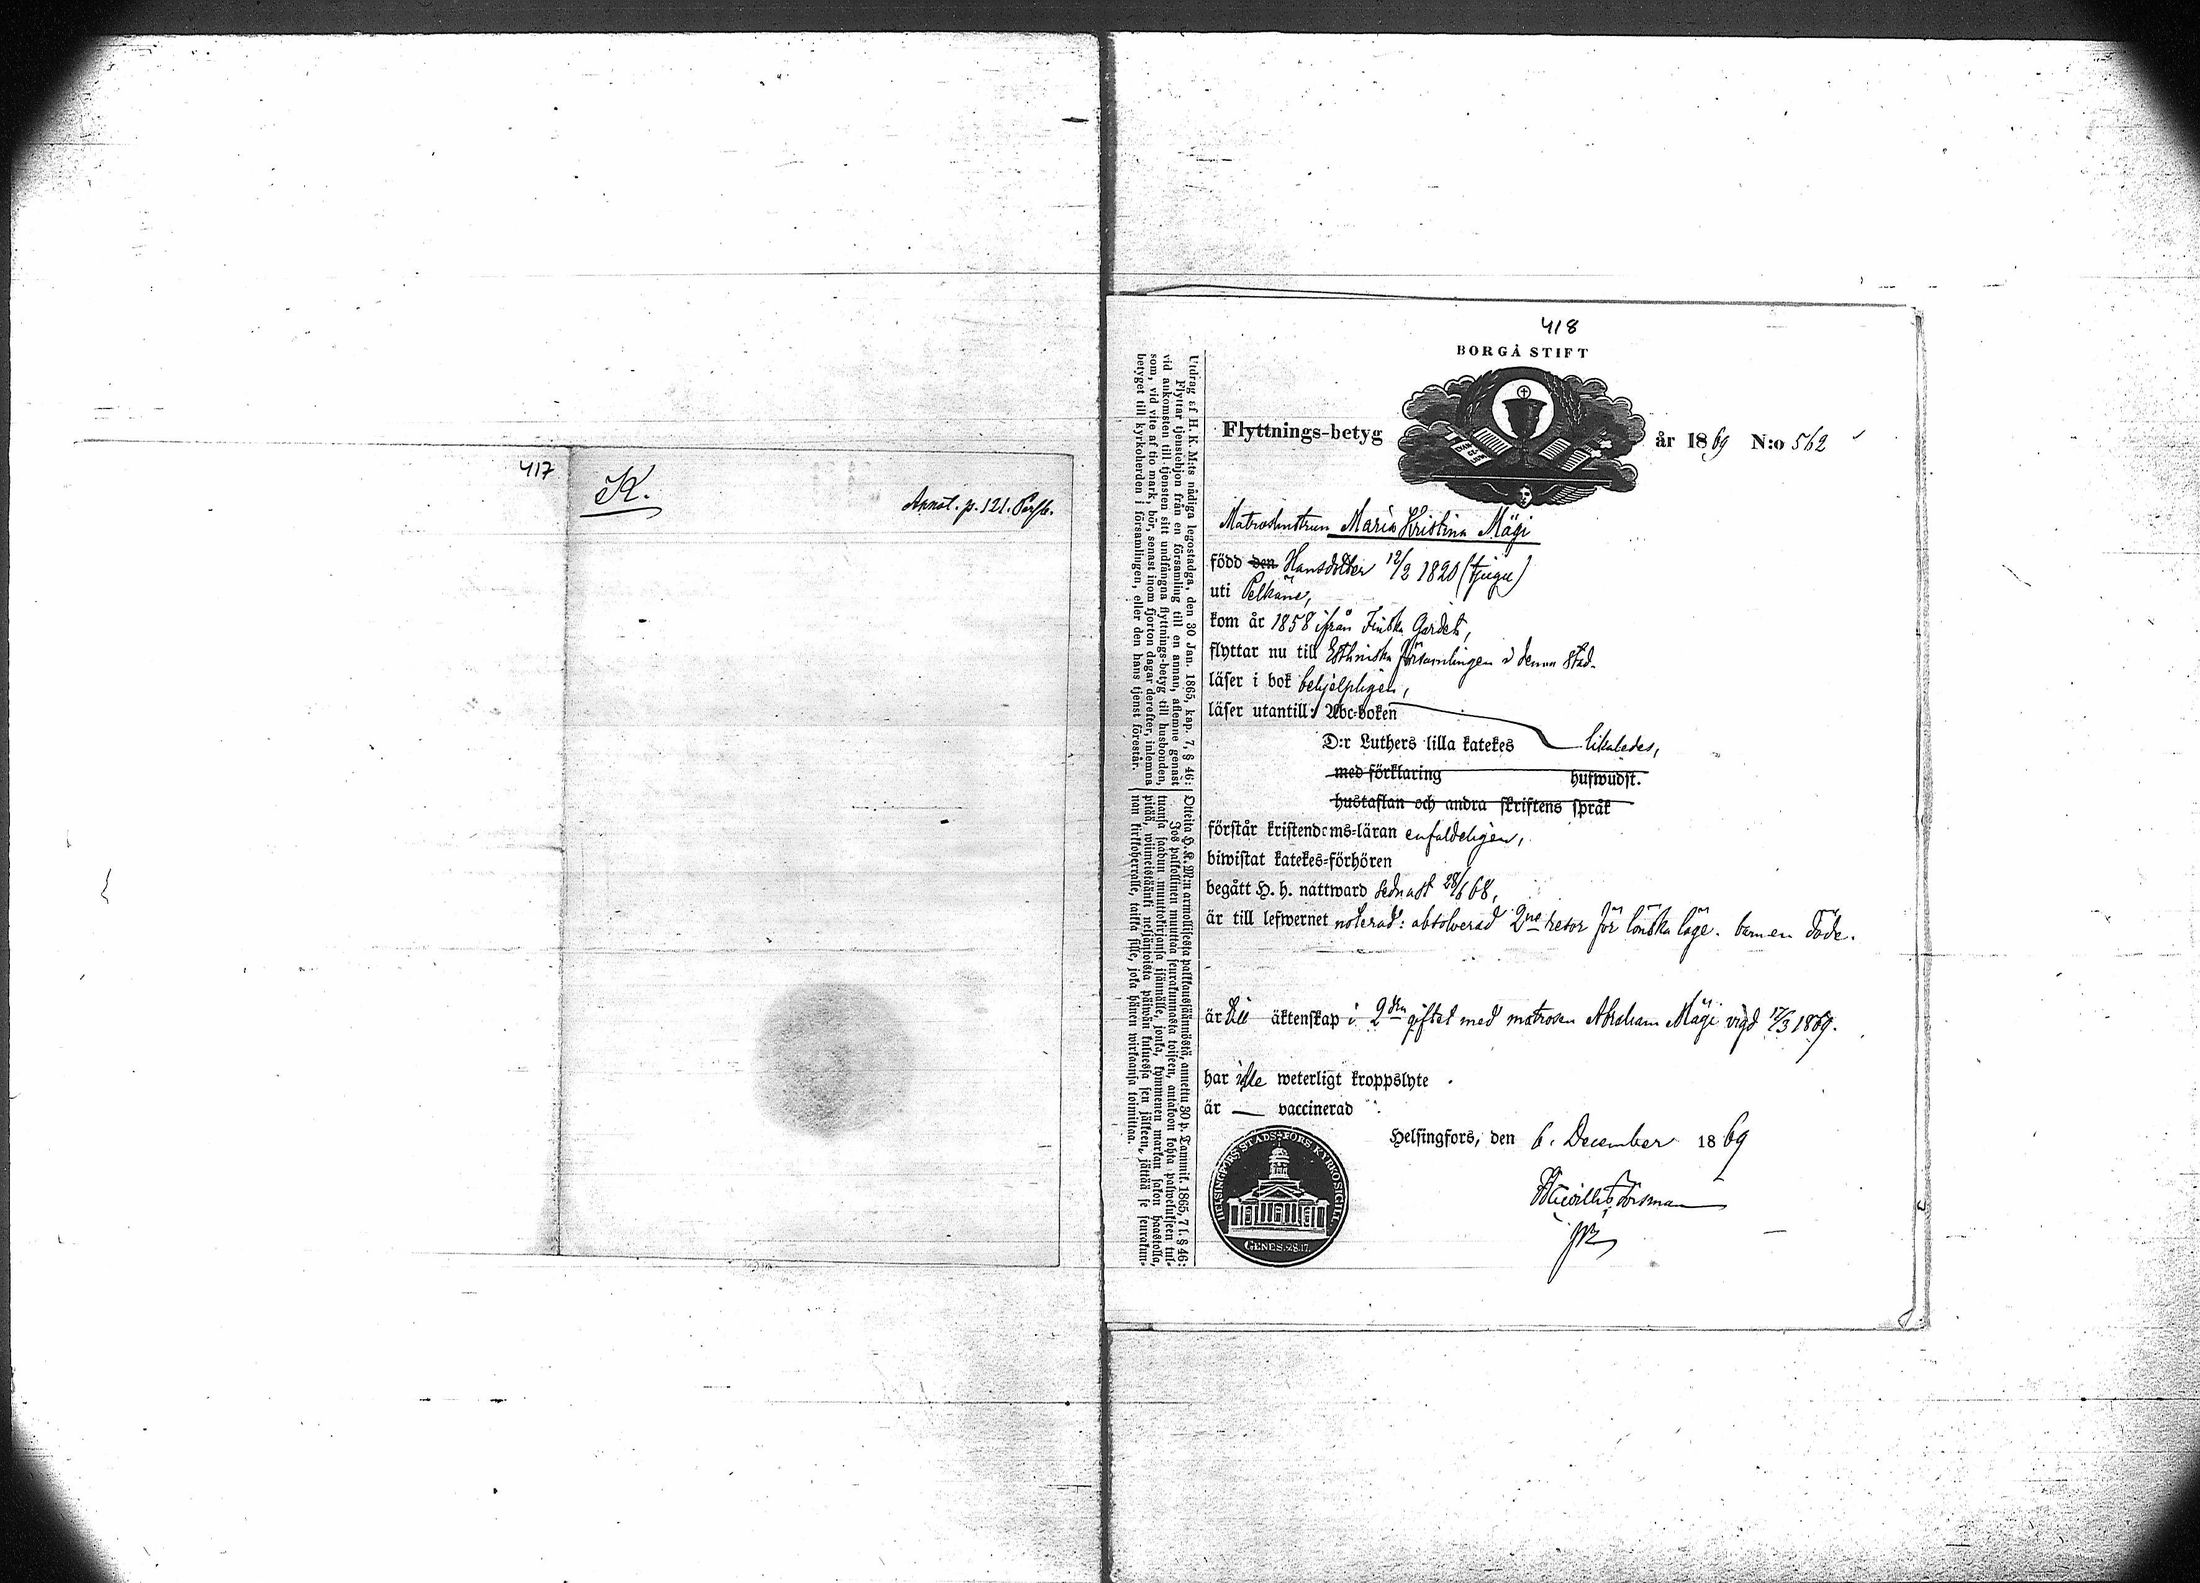 417
K.
Annot. p. 121.
418
BORGÅ STIFT
Flyttnings-betyg
år 1869 N:o 562
Matroshustrun Maria Kristina Mägi
född den Hansdotter 12/2 1820 (tjugu)
uti Pelkäne,
kom år 1858 ifrån Finska Gardet,
flyttar nu till Esthniska församlingen i denna stad.
läser i bok behjelpligen,
läser utantill: Abc-boken
D:r Luthers lilla katekes likaledes,
med förklaring hufwudst.
hustaflan och andra skriftens språk
förstår kristendoms-läran enfaldeligen,
biwistat katekes-förhören
begått H. h. nattward sednast 28/6 68,
är till lefwernet noterad: absolverad 2ne resor för lönska läge. barnen döde.
är till äktenskap i 2dra giftet med matrosen Abraham Mägi vigd 12/3 1869.
har icke weterligt kroppslyte
är — vaccinerad
Helsingfors, den 6. December 1869
Forsman
HELSINGFORS STADS-FÖRS KYRKOSIGILL
GENES. 28.17.
Utdrag af H. K. M:ts nådiga legostadga, den 30 Jan. 1865, kap. 7, § 46:
Flyttar tjenstehjon från en församling till en annan, aflemne genast
vid ankomsten till tjensten sitt undfångna flyttnings-betyg till husbonden,
som, vid vite af tio mark, bör, senast inom fjorton dagar derefter, inlemna
betyget till kyrkoherden i församlingen, eller den hans tjenst förestår.
Otteita H. K. M:n armollisesta palkkaussäännöstä, annettu 30 p. Tammik. 1865, 7 l. § 46:
Jos palkollinen muuttaa seurakunnasta toiseen, antakoon kohta palwelukseen tul-
tuansa saadun muuttokirjansa isännälle, jonka, kymmenen markan sakon haastolla,
pitää, wiimeistäänki neljäntoista päiwän kuluessa sen jälkeen, jättää se seurakun-
nan kirkkoherralle, taikka sille, joka hänen wirkaansa toimittaa.